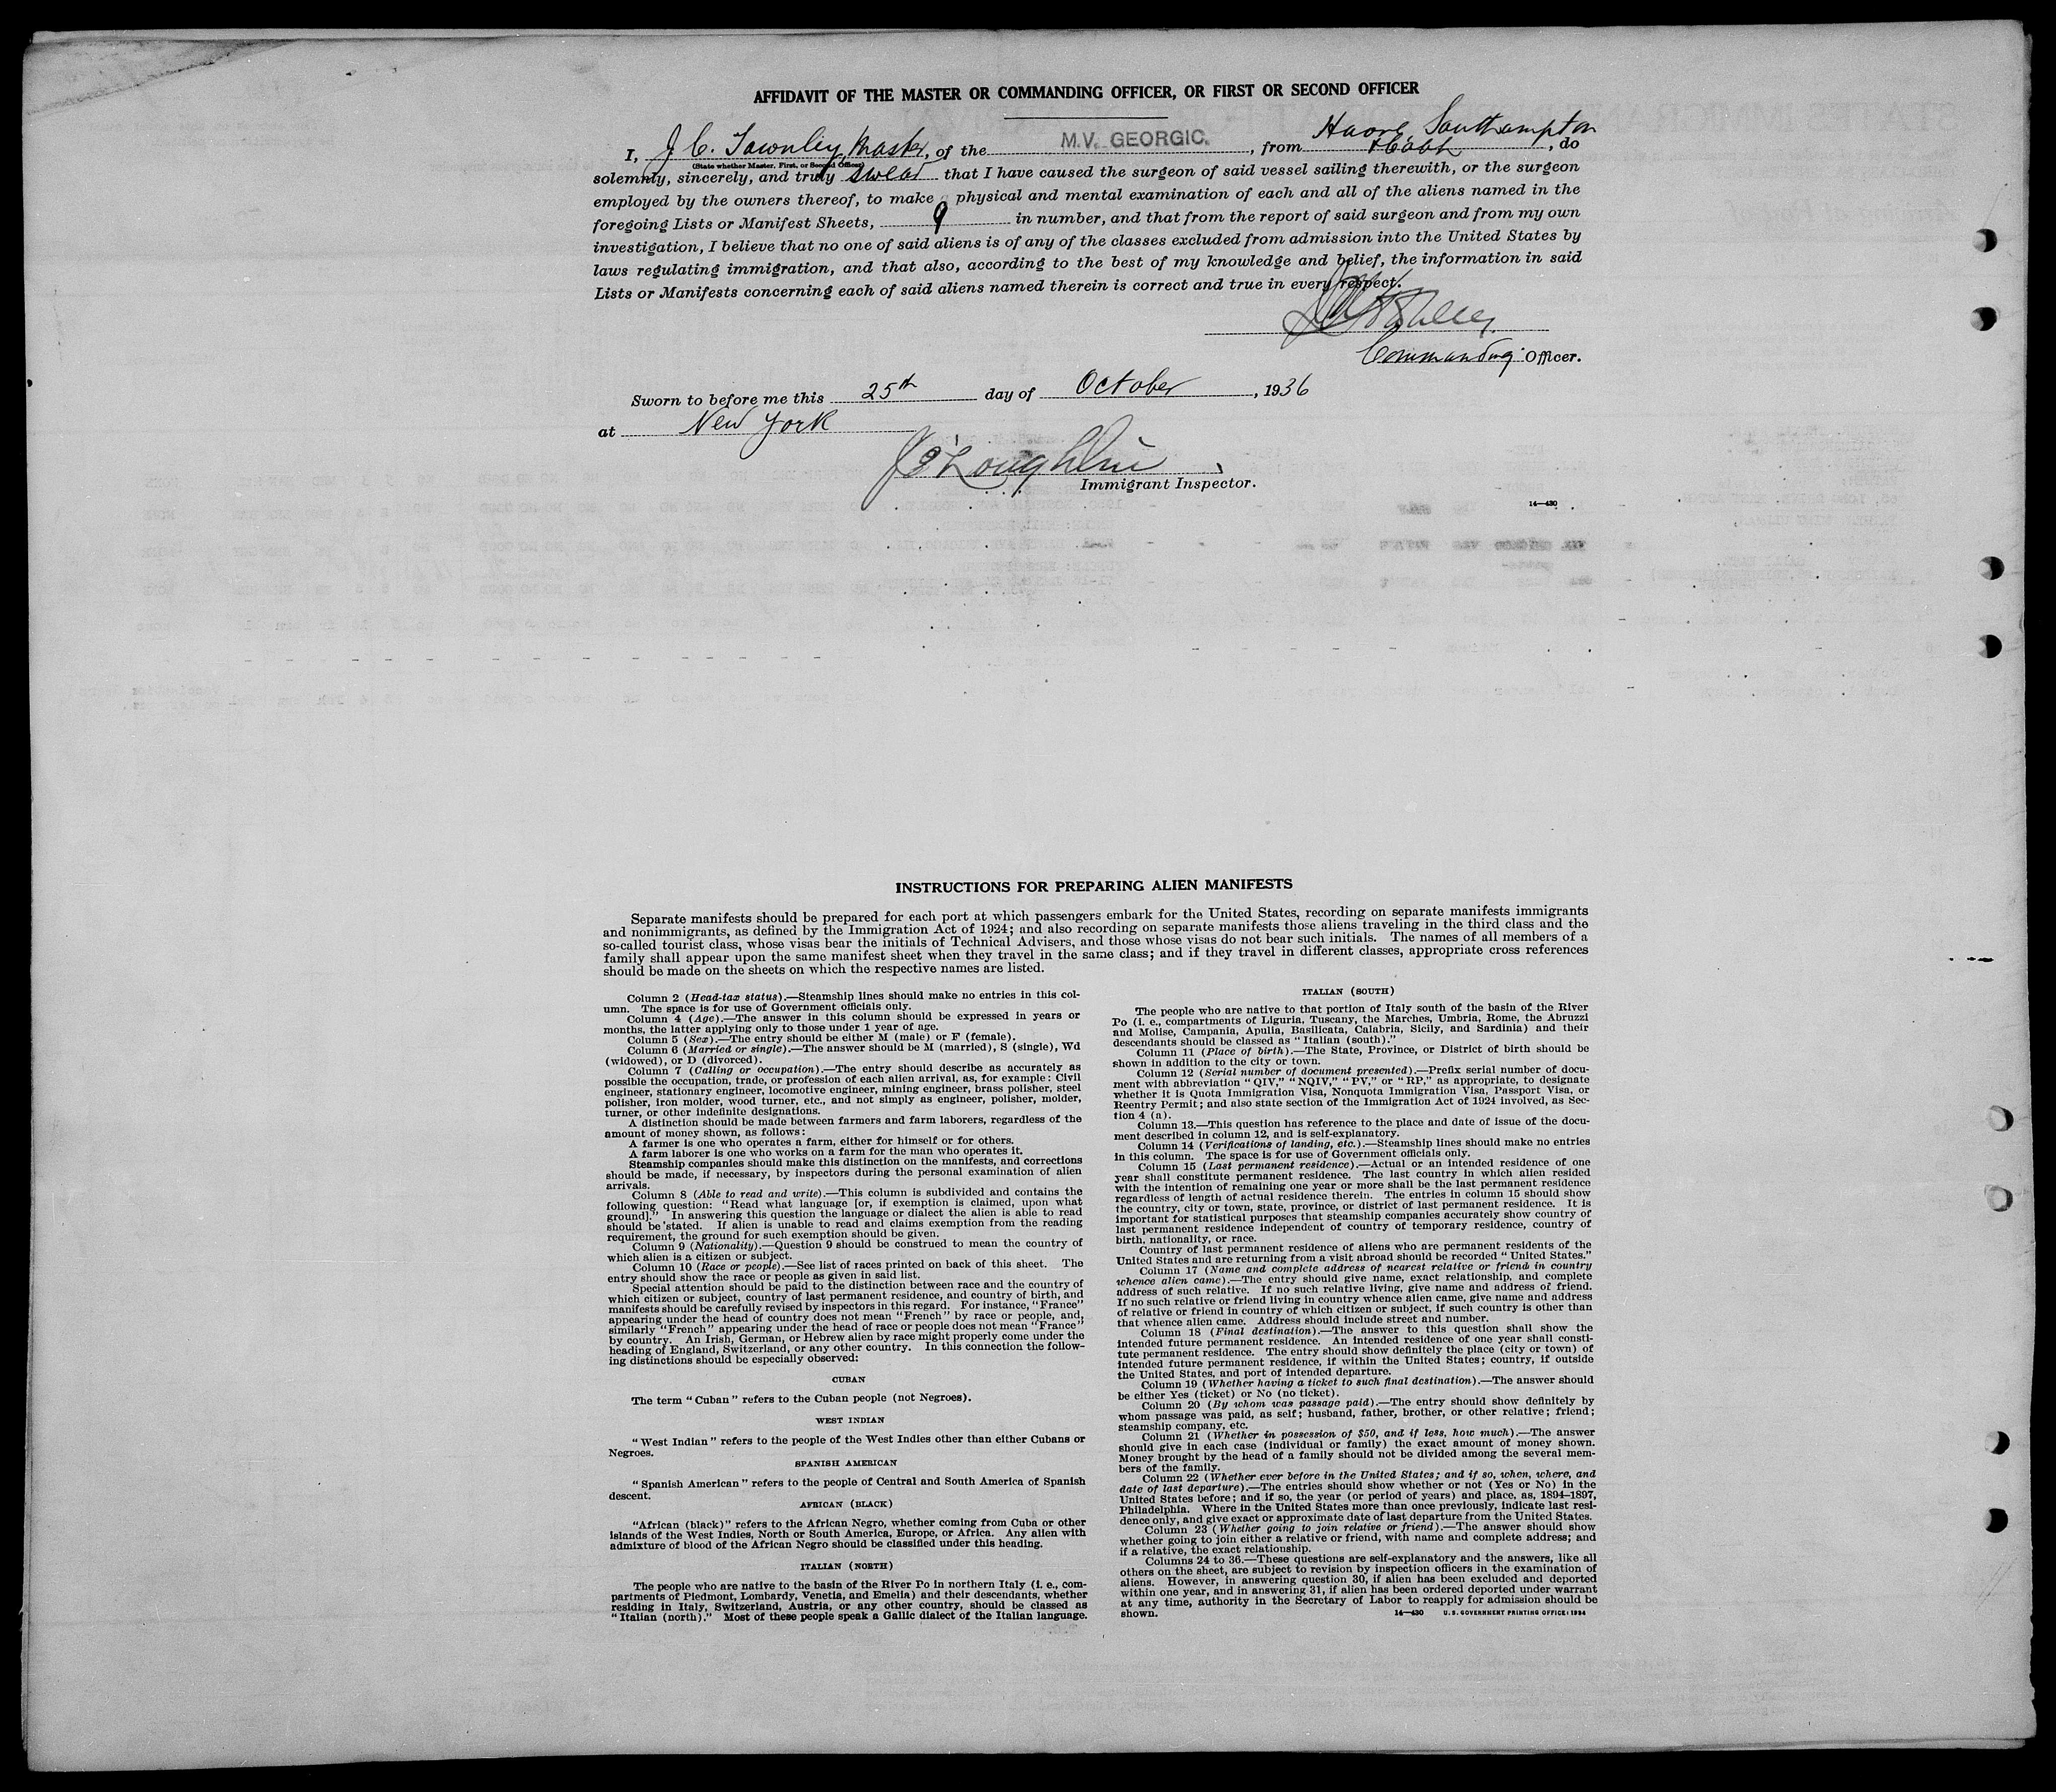 AFFIDAVIT OF THE MASTER OR COMMANDING OFFICER, OR FIRST OR SECOND OFFICER
I, J C. Townley, Master, of the M.V. GEORGIC. , from Havre, Southampton
& Cobh , do
(State whether Master, First, or Second Officer)
solemnly, sincerely, and truly swear that I have caused the surgeon of said vessel sailing therewith, or the surgeon
employed by the owners thereof, to make a physical and mental examination of each and all of the aliens named in the
foregoing Lists or Manifest Sheets, 9 in number, and that from the report of said surgeon and from my own
investigation, I believe that no one of said aliens is of any of the classes excluded from admission into the United States by
laws regulating immigration, and that also, according to the best of my knowledge and belief, the information in said
Lists or Manifests concerning each of said aliens named therein is correct and true in every respect.
Commanding Officer.
Sworn to before me this 25th day of October , 1936
at New York
J O'Loughlin
Immigrant Inspector.
14—430
INSTRUCTIONS FOR PREPARING ALIEN MANIFESTS
Separate manifests should be prepared for each port at which passengers embark for the United States, recording on separate manifests immigrants
and nonimmigrants, as defined by the Immigration Act of 1924; and also recording on separate manifests those aliens traveling in the third class and the
so-called tourist class, whose visas bear the initials of Technical Advisers, and those whose visas do not bear such initials. The names of all members of a
family shall appear upon the same manifest sheet when they travel in the same class; and if they travel in different classes, appropriate cross references
should be made on the sheets on which the respective names are listed.
Column 2 (Head-tax status).—Steamship lines should make no entries in this col-
umn. The space is for use of Government officials only.
Column 4 (Age).—The answer in this column should be expressed in years or
months, the latter applying only to those under 1 year of age.
Column 5 (Sex).—The entry should be either M (male) or F (female).
Column 6 (Married or single).—The answer should be M (married), S (single), Wd
(widowed), or D (divorced).
Column 7 (Calling or occupation).—The entry should describe as accurately as
possible the occupation, trade, or profession of each alien arrival, as, for example: Civil
engineer, stationary engineer, locomotive engineer, mining engineer, brass polisher, steel
polisher, iron molder, wood turner, etc., and not simply as engineer, polisher, molder,
turner, or other indefinite designations.
A distinction should be made between farmers and farm laborers, regardless of the
amount of money shown, as follows:
A farmer is one who operates a farm, either for himself or for others.
A farm laborer is one who works on a farm for the man who operates it.
Steamship companies should make this distinction on the manifests, and corrections
should be made, if necessary, by inspectors during the personal examination of alien
arrivals.
Column 8 (Able to read and write).—This column is subdivided and contains the
following question: "Read what language [or, if exemption is claimed, upon what
ground]." In answering this question the language or dialect the alien is able to read
should be stated. If alien is unable to read and claims exemption from the reading
requirement, the ground for such exemption should be given.
Column 9 (Nationality).—Question 9 should be construed to mean the country of
which alien is a citizen or subject.
Column 10 (Race or people).—See list of races printed on back of this sheet. The
entry should show the race or people as given in said list.
Special attention should be paid to the distinction between race and the country of
which citizen or subject, country of last permanent residence, and country of birth, and
manifests should be carefully revised by inspectors in this regard. For instance, "France"
appearing under the head of country does not mean "French" by race or people, and,
similarly "French" appearing under the head of race or people does not mean "France"
by country. An Irish, German, or Hebrew alien by race might properly come under the
heading of England, Switzerland, or any other country. In this connection the follow-
ing distinctions should be especially observed:
CUBAN
The term "Cuban" refers to the Cuban people (not Negroes).
WEST INDIAN
"West Indian" refers to the people of the West Indies other than either Cubans or
Negroes.
SPANISH AMERICAN
"Spanish American" refers to the people of Central and South America of Spanish
descent.
AFRICAN (BLACK)
"African (black)" refers to the African Negro, whether coming from Cuba or other
islands of the West Indies, North or South America, Europe, or Africa. Any alien with
admixture of blood of the African Negro should be classified under this heading.
ITALIAN (NORTH)
The people who are native to the basin of the River Po in northern Italy (i. e., com-
partments of Piedmont, Lombardy, Venetia, and Emelia) and their descendants, whether
residing in Italy, Switzerland, Austria, or any other country, should be classed as
"Italian (north)." Most of these people speak a Gallic dialect of the Italian language.
ITALIAN (SOUTH)
The people who are native to that portion of Italy south of the basin of the River
Po (i. e., compartments of Liguria, Tuscany, the Marches, Umbria, Rome, the Abruzzi
and Molise, Campania, Apulia, Basilicata, Calabria, Sicily, and Sardinia) and their
descendants should be classed as "Italian (south)."
Column 11 (Place of birth).—The State, Province, or District of birth should be
shown in addition to the city or town.
Column 12 (Serial number of document presented).—Prefix serial number of docu-
ment with abbreviation "QIV," "NQIV," "PV," or "RP," as appropriate, to designate
whether it is Quota Immigration Visa, Nonquota Immigration Visa, Passport Visa, or
Reentry Permit; and also state section of the Immigration Act of 1924 involved, as Sec-
tion 4 (a).
Column 13.—This question has reference to the place and date of issue of the docu-
ment described in column 12, and is self-explanatory.
Column 14 (Verifications of landing, etc.).—Steamship lines should make no entries
in this column. The space is for use of Government officials only.
Column 15 (Last permanent residence).—Actual or an intended residence of one
year shall constitute permanent residence. The last country in which alien resided
with the intention of remaining one year or more shall be the last permanent residence
regardless of length of actual residence therein. The entries in column 15 should show
the country, city or town, state, province, or district of last permanent residence. It is
important for statistical purposes that steamship companies accurately show country of
last permanent residence independent of country of temporary residence, country of
birth, nationality, or race.
Country of last permanent residence of aliens who are permanent residents of the
United States and are returning from a visit abroad should be recorded "United States."
Column 17 (Name and complete address of nearest relative or friend in country
whence alien came).—The entry should give name, exact relationship, and complete
address of such relative. If no such relative living, give name and address of friend.
If no such relative or friend living in country whence alien came, give name and address
of relative or friend in country of which citizen or subject, if such country is other than
that whence alien came. Address should include street and number.
Column 18 (Final destination).—The answer to this question shall show the
intended future permanent residence. An intended residence of one year shall consti-
tute permanent residence. The entry should show definitely the place (city or town) of
intended future permanent residence, if within the United States; country, if outside
the United States, and port of intended departure.
Column 19 (Whether having a ticket to such final destination).—The answer should
be either Yes (ticket) or No (no ticket).
Column 20 (By whom was passage paid).—The entry should show definitely by
whom passage was paid, as self; husband, father, brother, or other relative; friend;
steamship company, etc.
Column 21 (Whether in possession of $50, and if less, how much).—The answer
should give in each case (individual or family) the exact amount of money shown.
Money brought by the head of a family should not be divided among the several mem-
bers of the family.
Column 22 (Whether ever before in the United States; and if so, when, where, and
date of last departure).—The entries should show whether or not (Yes or No) in the
United States before; and if so, the year (or period of years) and place, as, 1894–1897,
Philadelphia. Where in the United States more than once previously, indicate last resi-
dence only, and give exact or approximate date of last departure from the United States.
Column 23 (Whether going to join relative or friend).—The answer should show
whether going to join either a relative or friend, with name and complete address; and
if a relative, the exact relationship.
Columns 24 to 36.—These questions are self-explanatory and the answers, like all
others on the sheet, are subject to revision by inspection officers in the examination of
aliens. However, in answering question 30, if alien has been excluded and deported
within one year, and in answering 31, if alien has been ordered deported under warrant
at any time, authority in the Secretary of Labor to reapply for admission should be
shown.
14—430 U. S. GOVERNMENT PRINTING OFFICE: 1934